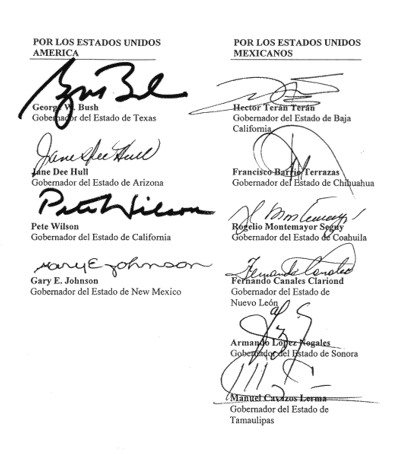 POR LOS ESTADOS UNIDOS
AMERICA
George W. Bush
Gobernador del Estado de Texas
Jane Dee Hull
Jane Dee Hull
Gobernador del Estado de Arizona
Pete Wilson
Pete Wilson
Gobernador del Estado de California
Gary E. Johnson
Gary E. Johnson
Gobernador del Estado de New Mexico
POR LOS ESTADOS UNIDOS
MEXICANOS
Hector Terán Terán
Gobernador del Estado de Baja
California
Francisco Barrio Terrazas
Gobernador del Estado de Chihuahua
Rogelio Montemayor Seguy
Gobernador del Estado de Coahuila
Fernando Canales
Fernando Canales Clariond
Gobernador del Estado de
Nuevo León
Armando López Nogales
Gobernador del Estado de Sonora
Manuel Cavazos Lerma
Gobernador del Estado de
Tamaulipas